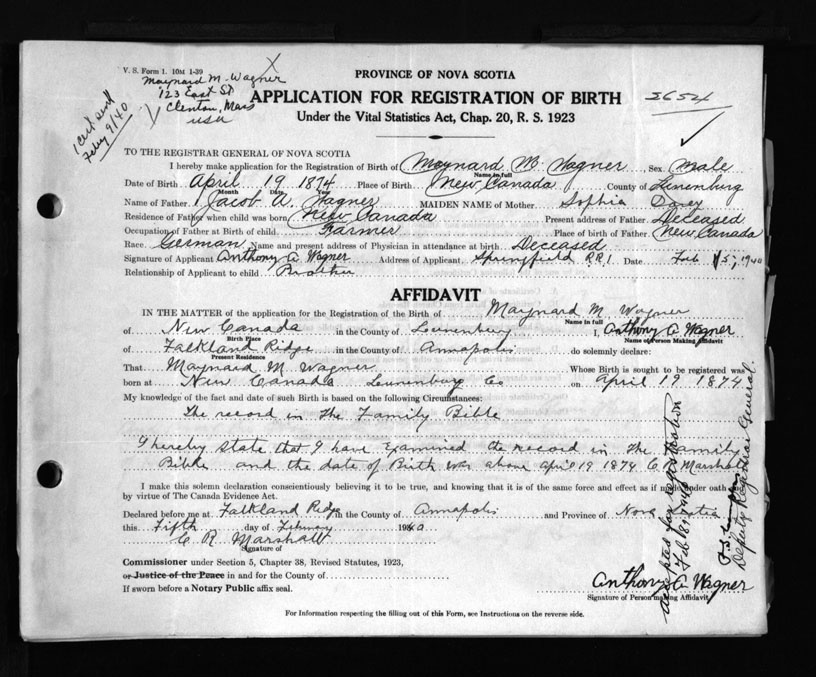 V. S. Form 1. 10M 1-39
Maynard M. Wagner
123 East St
Clenton, Mass
USA
1 cert sent
Feby 9/40
PROVINCE OF NOVA SCOTIA
APPLICATION FOR REGISTRATION OF BIRTH
Under the Vital Statistics Act, Chap. 20, R. S. 1923
3654
TO THE REGISTRAR GENERAL OF NOVA SCOTIA
I hereby make application for the Registration of Birth of Maynard M. Wagner, Sex Male
Name in full
Date of Birth April 19 1874 Place of Birth New Canada County of Lunenburg
Month Date Year
Name of Father Jacob A. Wagner MAIDEN NAME of Mother Sophia
Residence of Father when child was born New Canada Present address of Father Deceased
Occupation of Father at Birth of child Farmer Place of birth of Father New Canada
Race German Name and present address of Physician in attendance at birth Deceased
Signature of Applicant Anthony A Wagner Address of Applicant Springfield R.R.1 Date Feb 5, 1940
Relationship of Applicant to child Brother
AFFIDAVIT
IN THE MATTER of the application for the Registration of the Birth of Maynard M. Wagner
Name in full
of New Canada in the County of Lunenburg I, Anthony A Wagner
Birth Place Name of Person Making Affidavit
of Falkland Ridge in the County of Annapolis do solemnly declare:
Present Residence
That Maynard M. Wagner Whose Birth is sought to be registered was
born at New Canada Lunenburg Co on April 19 1874
My knowledge of the fact and date of such Birth is based on the following Circumstances:
The record in the Family Bible
I hereby state that I have examined the record in the Family
Bible and the date of Birth was above April 19 1874 C. R. Marshall
I make this solemn declaration conscientiously believing it to be true, and knowing that it is of the same force and effect as if made under oath and
by virtue of The Canada Evidence Act.
Declared before me at Falkland Ridge in the County of Annapolis and Province of Nova Scotia
this Fifth day of February 1940
C R Marshall
Signature of
Commissioner under Section 5, Chapter 38, Revised Statutes, 1923,
or Justice of the Peace in and for the County of
If sworn before a Notary Public affix seal.
Anthony A Wagner
Signature of Person making Affidavit
accepted for registration
Feb 8th 1940
Deputy Registrar General
For Information respecting the filling out of this Form, see Instructions on the reverse side.